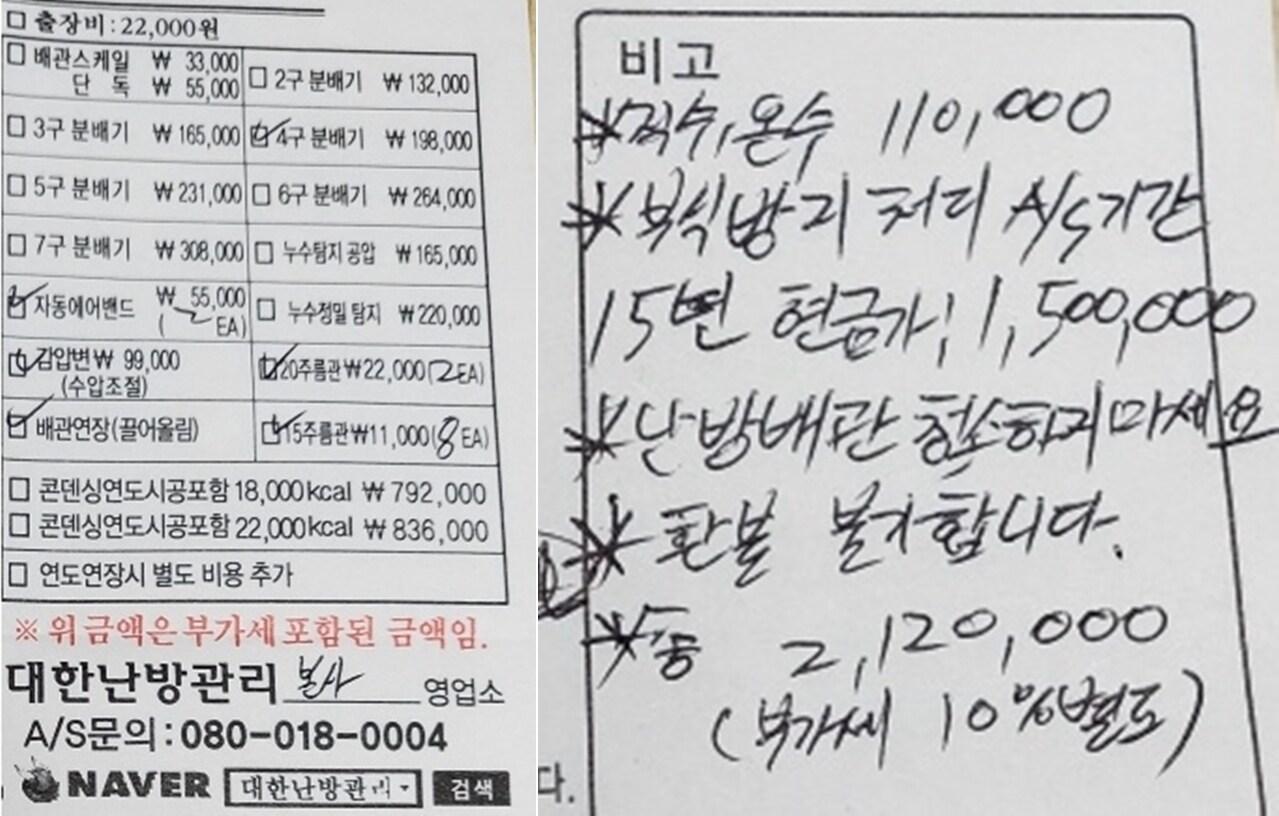 □ 출장비 : 22,000원
□ 배관스케일 ₩ 33,000
단 독 ₩ 55,000
□ 2구 분배기 ₩ 132,000
□ 3구 분배기 ₩ 165,000
☑ 4구 분배기 ₩ 198,000
□ 5구 분배기 ₩ 231,000
□ 6구 분배기 ₩ 264,000
□ 7구 분배기 ₩ 308,000
□ 누수탐지 공압 ₩ 165,000
☑ 자동에어밴드 ₩ 55,000
( EA)
□ 누수정밀 탐지 ₩ 220,000
☑ 감압변 ₩ 99,000
(수압조절)
☑ 20주름관 ₩ 22,000 (2EA)
☑ 배관연장(끌어올림)
☑ 15주름관 ₩ 11,000 (8EA)
□ 콘덴싱연도시공포함 18,000kcal ₩ 792,000
□ 콘덴싱연도시공포함 22,000kcal ₩ 836,000
□ 연도연장시 별도 비용 추가
※ 위 금액은 부가세 포함된 금액임.
대한난방관리 본사 영업소
A/S문의 : 080-018-0004
NAVER 대한난방관리 검색
비고
* 직수, 온수 110,000
* 부식방지 처리 A/S기간
15년 현금가; 1,500,000
* 난방배관 청소하지마세요
* 환불 불가합니다.
* 총 2,120,000
(부가세 10%별도)
다.